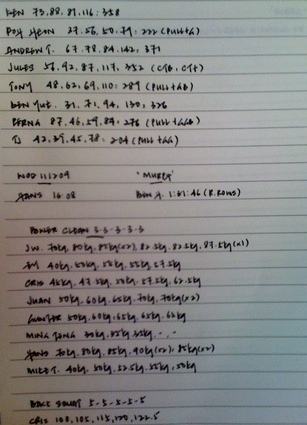 KEN 73.88.81.116: 358
ROY 27.56.60.79: 222 (PULL+G)
ANDREW T. 67.78.84.142, 371
JULES 56.92.87.117, 352 (CTB, CTF)
TONY 48.62.69.110: 289 (PULL+GB)
BEN 31.71.94, 130, 326
87.46.59.84: 276 (PULL+GG)
TJ 42.39.45.78: 204 (PULL+GG)
WOD 111209 "MURPH"
HANS 16.08 BEN A. 1:01:46 (R.ROWS)
POWER CLEAN 3-3-3-3-3
JW 70kg, 80kg, 85kg(x2), 82.5kg, 82.5kg, 87.5kg(x1)
40kg, 50kg, 55kg, 55kg, 57.5kg
CRIS 45kg, 47.5kg, 50kg, 57.5kg, 62.5kg
JUAN 50kg, 60kg, 65kg, 70kg, 70kg(x2)
GUNTHER 50kg, 60kg, 65kg, 65kg, 65kg
MING 30kg, 35kg, 35kg, -, -
HANS 70kg, 80kg, 85kg, 90kg(x2), 85kg(x2)
MIKE T. 40kg, 50kg, 52.5kg, 55kg, 50kg
BACK SQUAT 5-5-5-5-5
CRIS 100, 105, 115, 120, 122.5